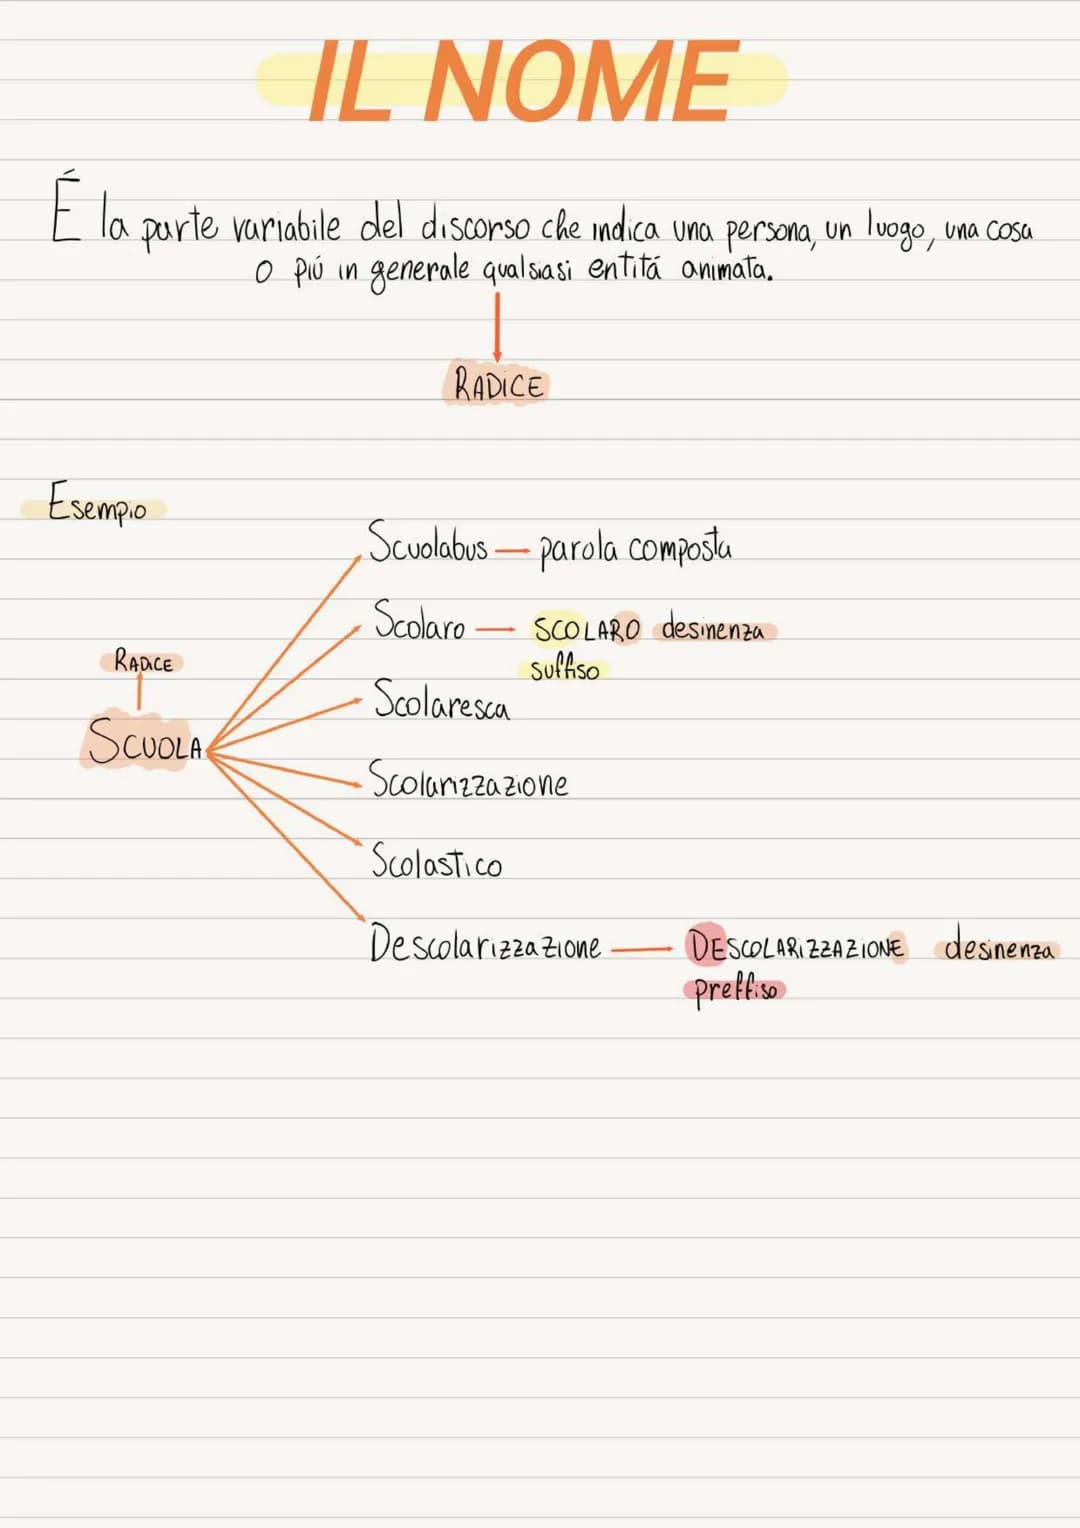 IL NOME
É la parte variabile del discorso che indica una persona, un luogo, una cosa
o piú in generale qualsiasi entitá animata.
RADICE
Esempio
Scuolabus → parola composta
Scolaro → SCOLARO desinenza
suffiso
RADICE
Scolaresca
SCUOLA
Scolarizzazione
Scolastico
Descolarizzazione → DESCOLARIZZAZIONE desinenza
preffiso